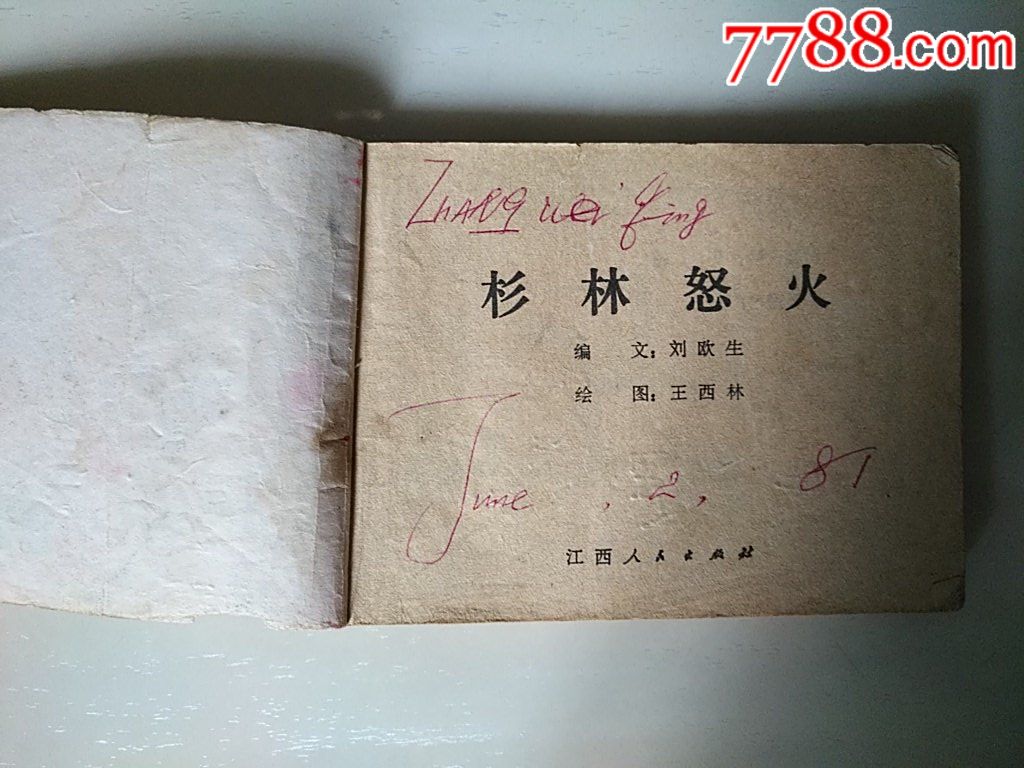 7788.com
Zhang wei qing
杉林怒火
编 文：刘欧生
绘 图：王西林
June , 2 , 81
江西人民出版社